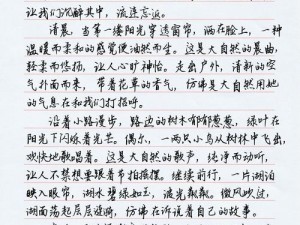 让我们沉醉其中，流连忘返。
清晨，当第一缕阳光穿透窗帘，洒在脸上，一种
温暖而柔和的感觉便油然而生。这是大自然的晨曲，
轻柔而悠扬，让人心旷神怡。走出户外，清新的空
气扑面而来，带着花草的香气，仿佛是大自然用她
的气息在和我们打招呼。
沿着小路漫步，路边的树木郁郁葱葱，绿叶在
阳光下闪烁着光芒。偶尔，一两只小鸟从树林中飞出，
欢快地歌唱着。这是大自然的歌声，纯净而动听，
让人不禁想要跟着节拍摇摆。继续前行，一片湖泊
映入眼帘，湖水碧绿如玉，波光粼粼。微风吹过，
湖面荡起层层涟漪，仿佛在诉说着自己的故事。